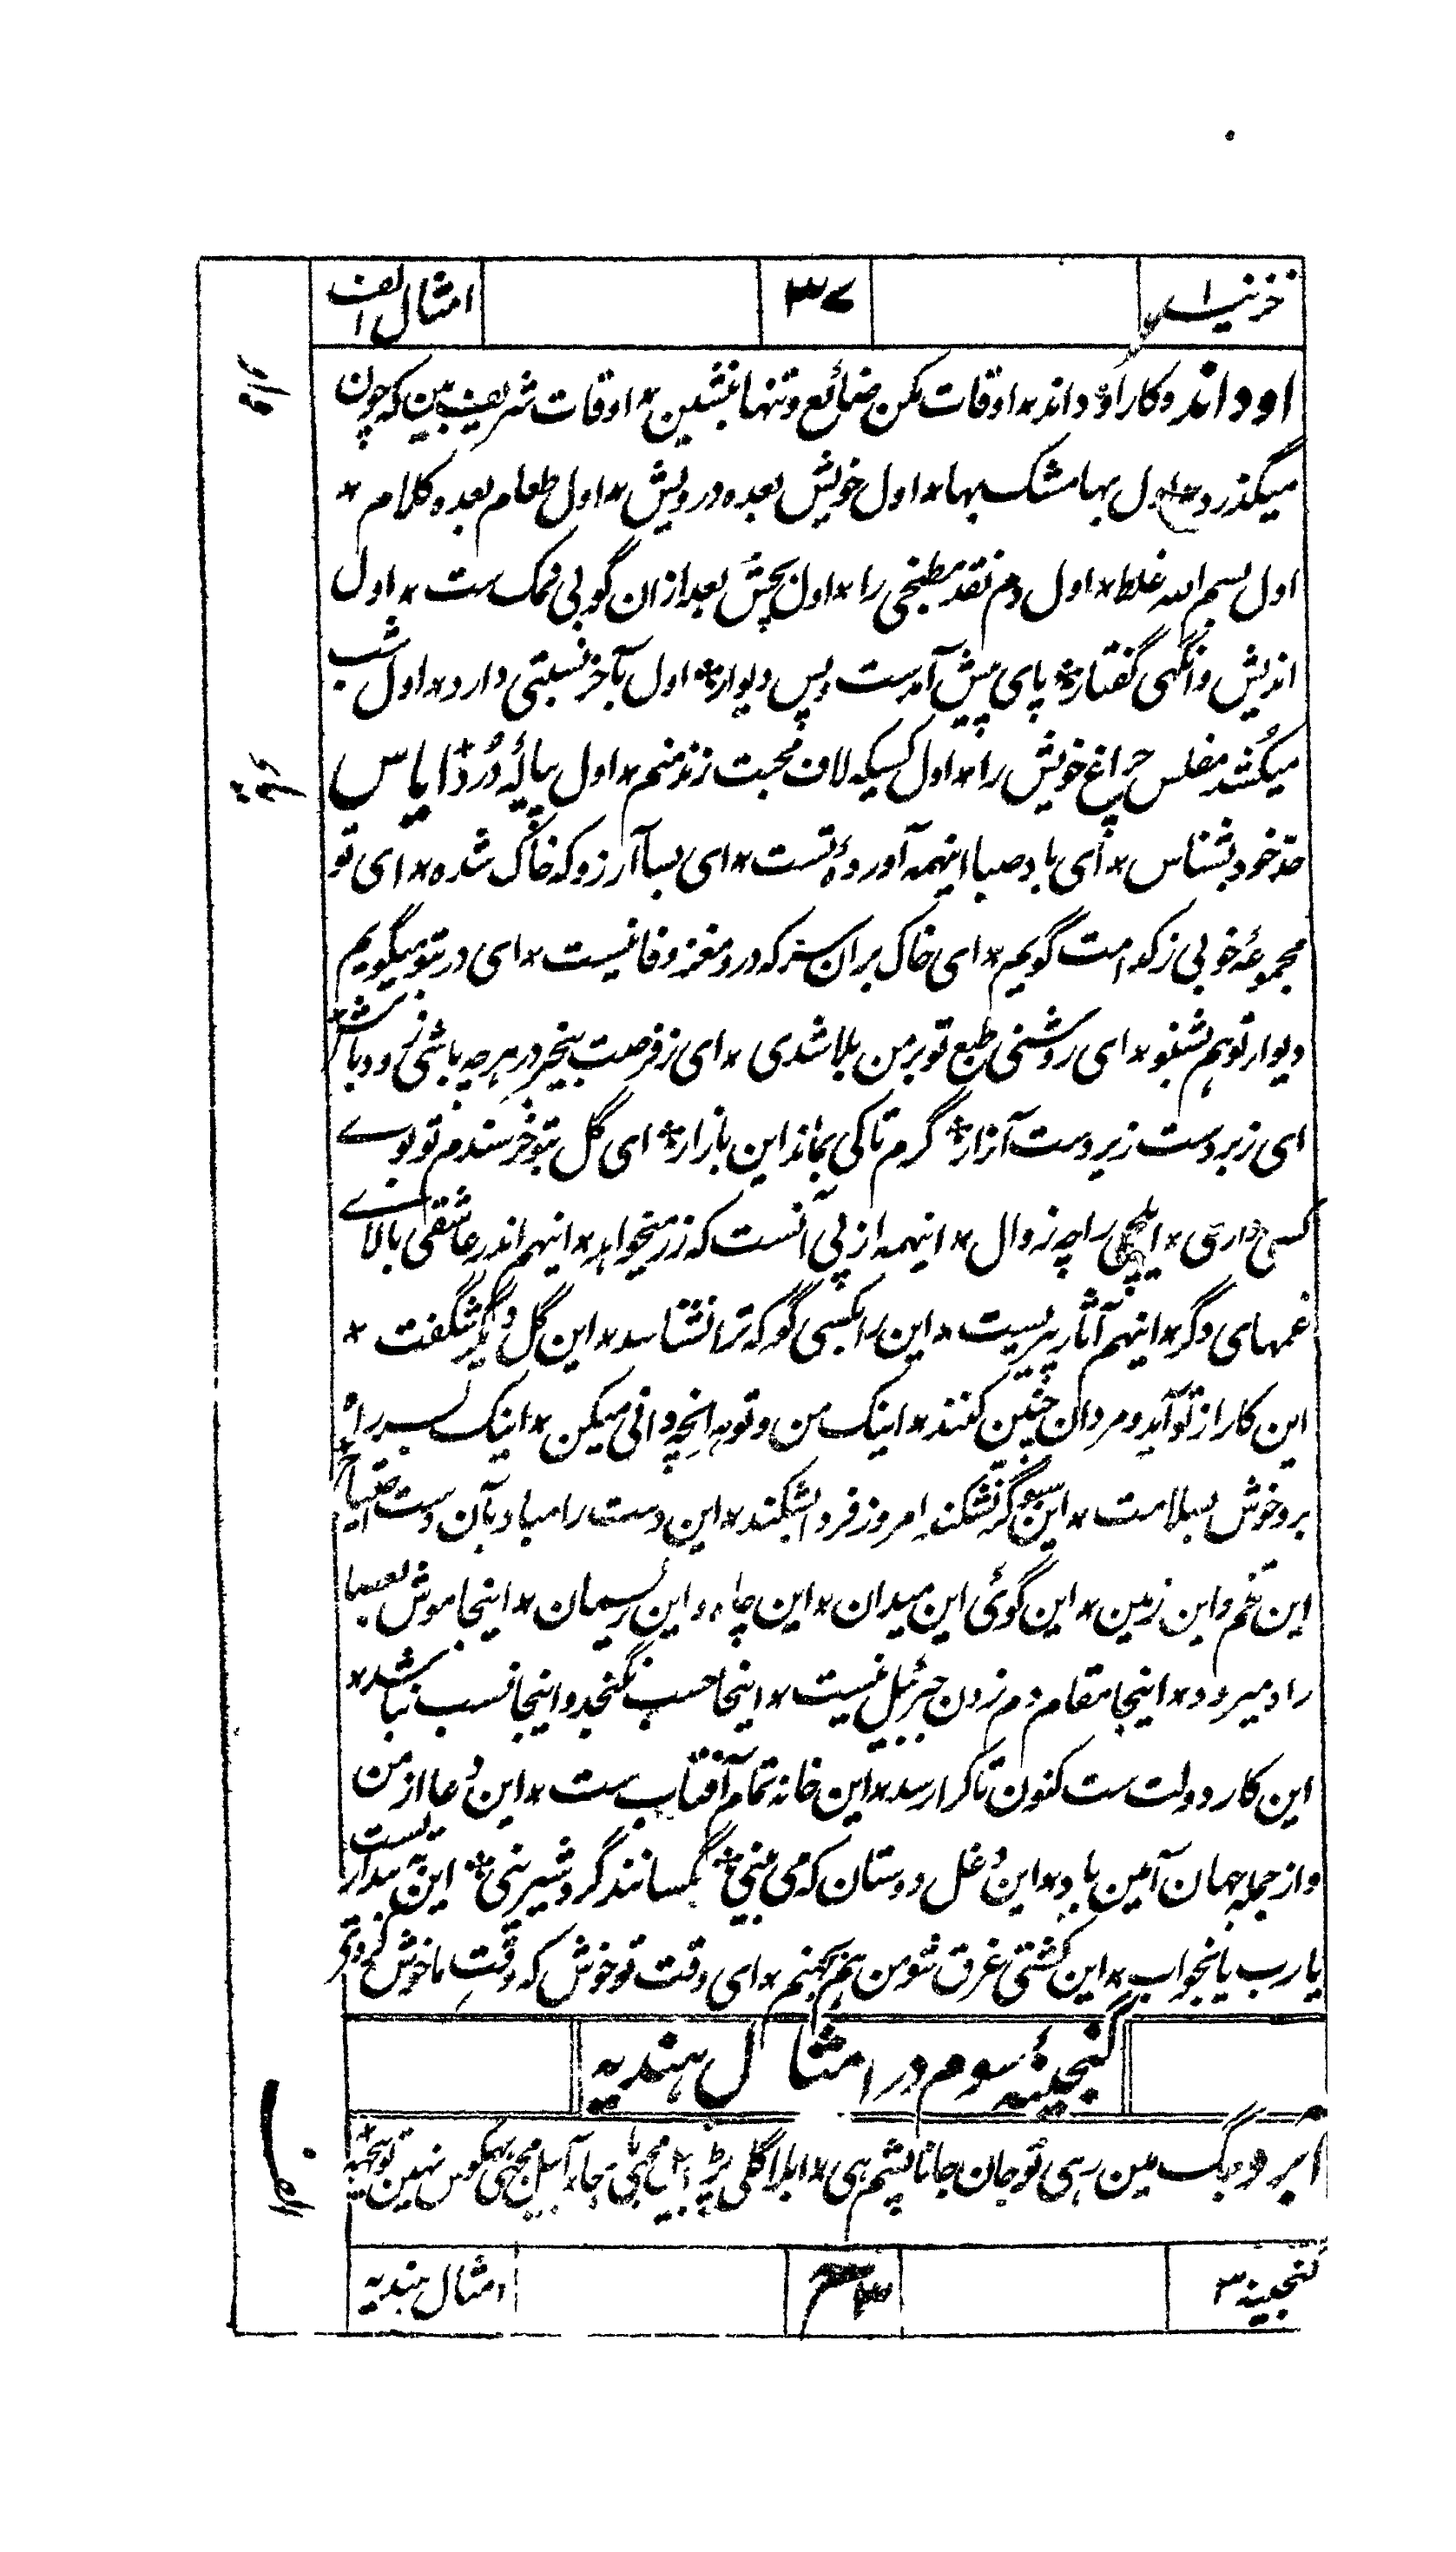 خزینہ ۱
۳۷
امثال الف
او داند و کار او داند * اوقات مکن ضائع و تنها منشین * اوقات شریف بین که چون
میگذرد * اول بها مشک بها * اول خویش بعده درویش * اول طعام بعده کلام *
اول بسم الله غلط * اول دم نقد مطبخی را * اول بچش بعد ازان گو بی نمک ست * اول
اندیش وانگهی گفتار * پای پیش آمدست و پس دیوار * اول بآخر نسبتی دارد * اول شب
میکُشد مفلس چراغ خویش را * اول کسیکه لاف محبت زند منم * اول پیالۂ دُرد * ایاس
حدِ خود بشناس * ای باد صبا اینهمه آوردۂ تست * ای بسا آرزو که خاک شده * ای تو
مجموعۂ خوبی ز کدامت گویم * ای خاک بران سر که درو مغز وفا نیست * ای در بتو میگویم
دیوار تو هم بشنو * ای روشنی طبع تو بر من بلا شدی * ای ز فرصت بیخبر در هر چه باشی زود باش *
ای زبردست زیر دست آزار * گرم تا کی بماند این بازار * ای گل بتو خرسندم تو بوے
کسی داری * ایلچی را چه زوال * اینهمه از پی آنست که زر میخواهد * اینهم اندر عاشقی بالاے
غمهای دگر * اینهم آثار پیریست * این را بکسی گو که ترا نشناسد * این گل دیگر شگفت *
این کار از تو آید و مردان چنین کنند * اینک من و تو هر انچه دانی میکن * اینک سر راه
برو خوش بسلامت * این سبو گر نشکند امروز فردا بشکند * این دست را مباد بآن دست احتیاج *
این تخم و این زمین * این گوئی این میدان * این چاه و این ریسمان * اینجا موش بعصا
راه میرود * اینجا مقام دم زدن جبرئیل نیست * اینجا حسب نگنجد و اینجا نسب نباشد *
این کار دولت ست کنون تا کرا رسد * این خانه تمام آفتاب ست * این دُعا از من
و از جمله جهان آمین باد * این دغل دوستان که می بینی * مگسانند گرد شیرینی * این به بیداریست
یا رب یا بخواب * این کشتی غرق شو من هم جهنم * ای وقت تو خوش که وقتِ ما خوش کردی
گنجینۂ سوم در امثال ہندیہ
آبرو جگ مین رہی تو جان جانا پشم ہی *
گنجینہ ۳
امثال ہندیہ